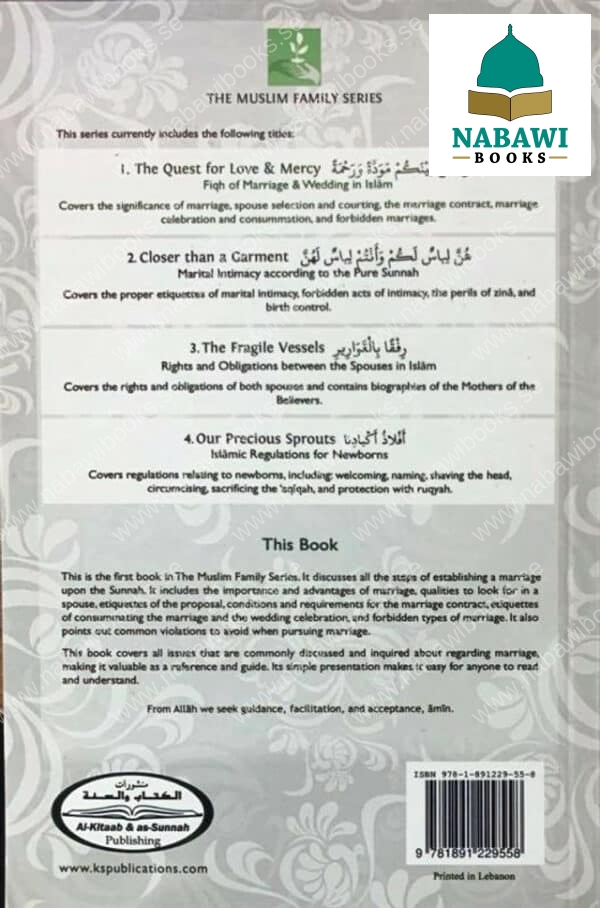 NABAWI
BOOKS
THE MUSLIM FAMILY SERIES
This series currently includes the following titles:
1. The Quest for Love & Mercy بَيْنَكُمْ مَوَدَّةً وَرَحْمَةً
Fiqh of Marriage & Wedding in Islām
Covers the significance of marriage, spouse selection and courting, the marriage contract, marriage
celebration and consummation, and forbidden marriages.
2. Closer than a Garment هُنَّ لِبَاسٌ لَكُمْ وَأَنْتُمْ لِبَاسٌ لَهُنَّ
Marital Intimacy according to the Pure Sunnah
Covers the proper etiquettes of marital intimacy, forbidden acts of intimacy, the perils of zinā, and
birth control.
3. The Fragile Vessels رِفْقًا بِالْقَوَارِيرِ
Rights and Obligations between the Spouses in Islām
Covers the rights and obligations of both spouses and contains biographies of the Mothers of the
Believers.
4. Our Precious Sprouts أَفْلَاذُ أَكْبَادِنَا
Islāmic Regulations for Newborns
Covers regulations relating to newborns, including: welcoming, naming, shaving the head,
circumcising, sacrificing the ʿaqīqah, and protection with ruqyah.
This Book
This is the first book in The Muslim Family Series. It discusses all the steps of establishing a marriage
upon the Sunnah. It includes the importance and advantages of marriage, qualities to look for in a
spouse, etiquettes of the proposal, conditions and requirements for the marriage contract, etiquettes
of consummating the marriage and the wedding celebration, and forbidden types of marriage. It also
points out common violations to avoid when pursuing marriage.
This book covers all issues that are commonly discussed and inquired about regarding marriage,
making it valuable as a reference and guide. Its simple presentation makes it easy for anyone to read
and understand.
From Allāh we seek guidance, facilitation, and acceptance, āmīn.
منشورات
الكتاب والسنة
Al-Kitaab & as-Sunnah
Publishing
www.kspublications.com
ISBN 978-1-891229-55-8
9 781891 229558
Printed in Lebanon
www.nabawibooks.se